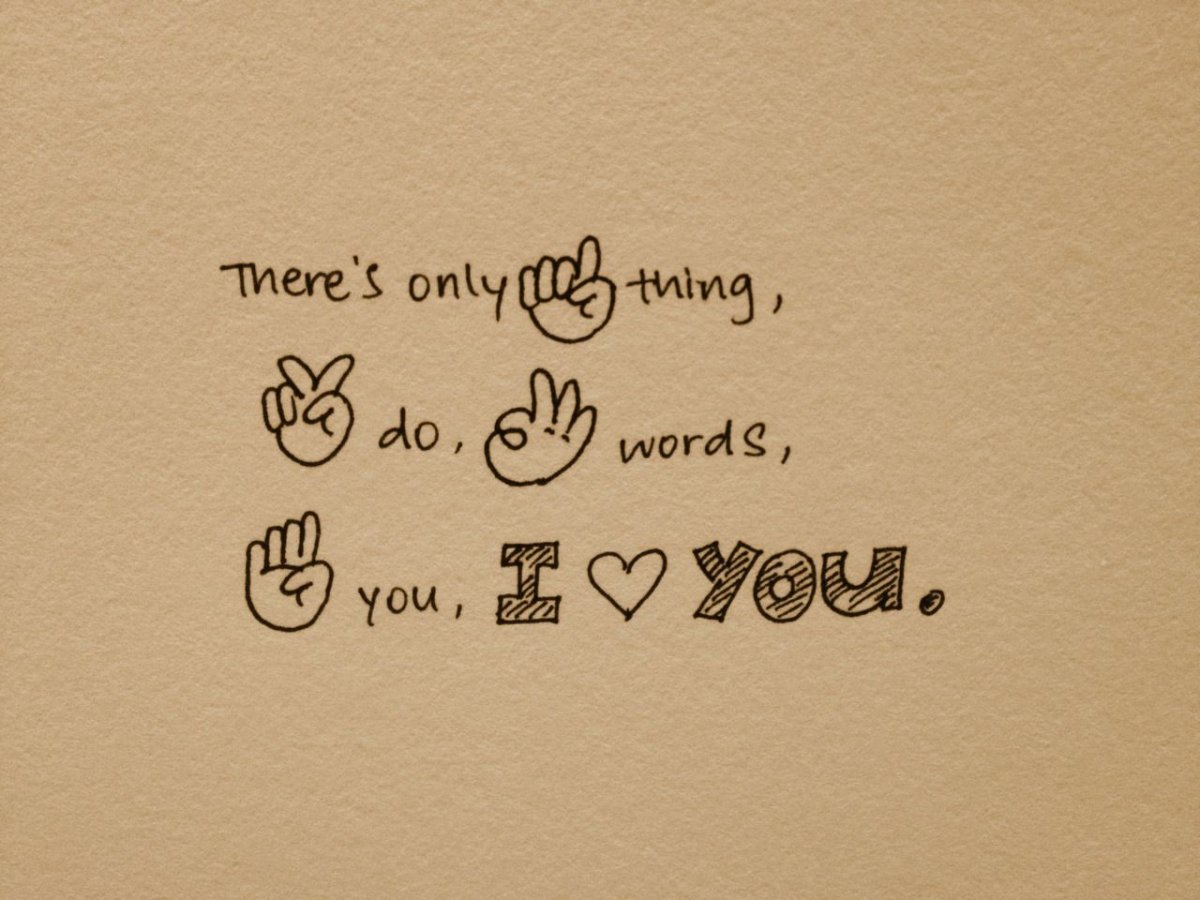 There's only ☝ thing,
✌ do, 👌 words,
you, I ♥ YOU.